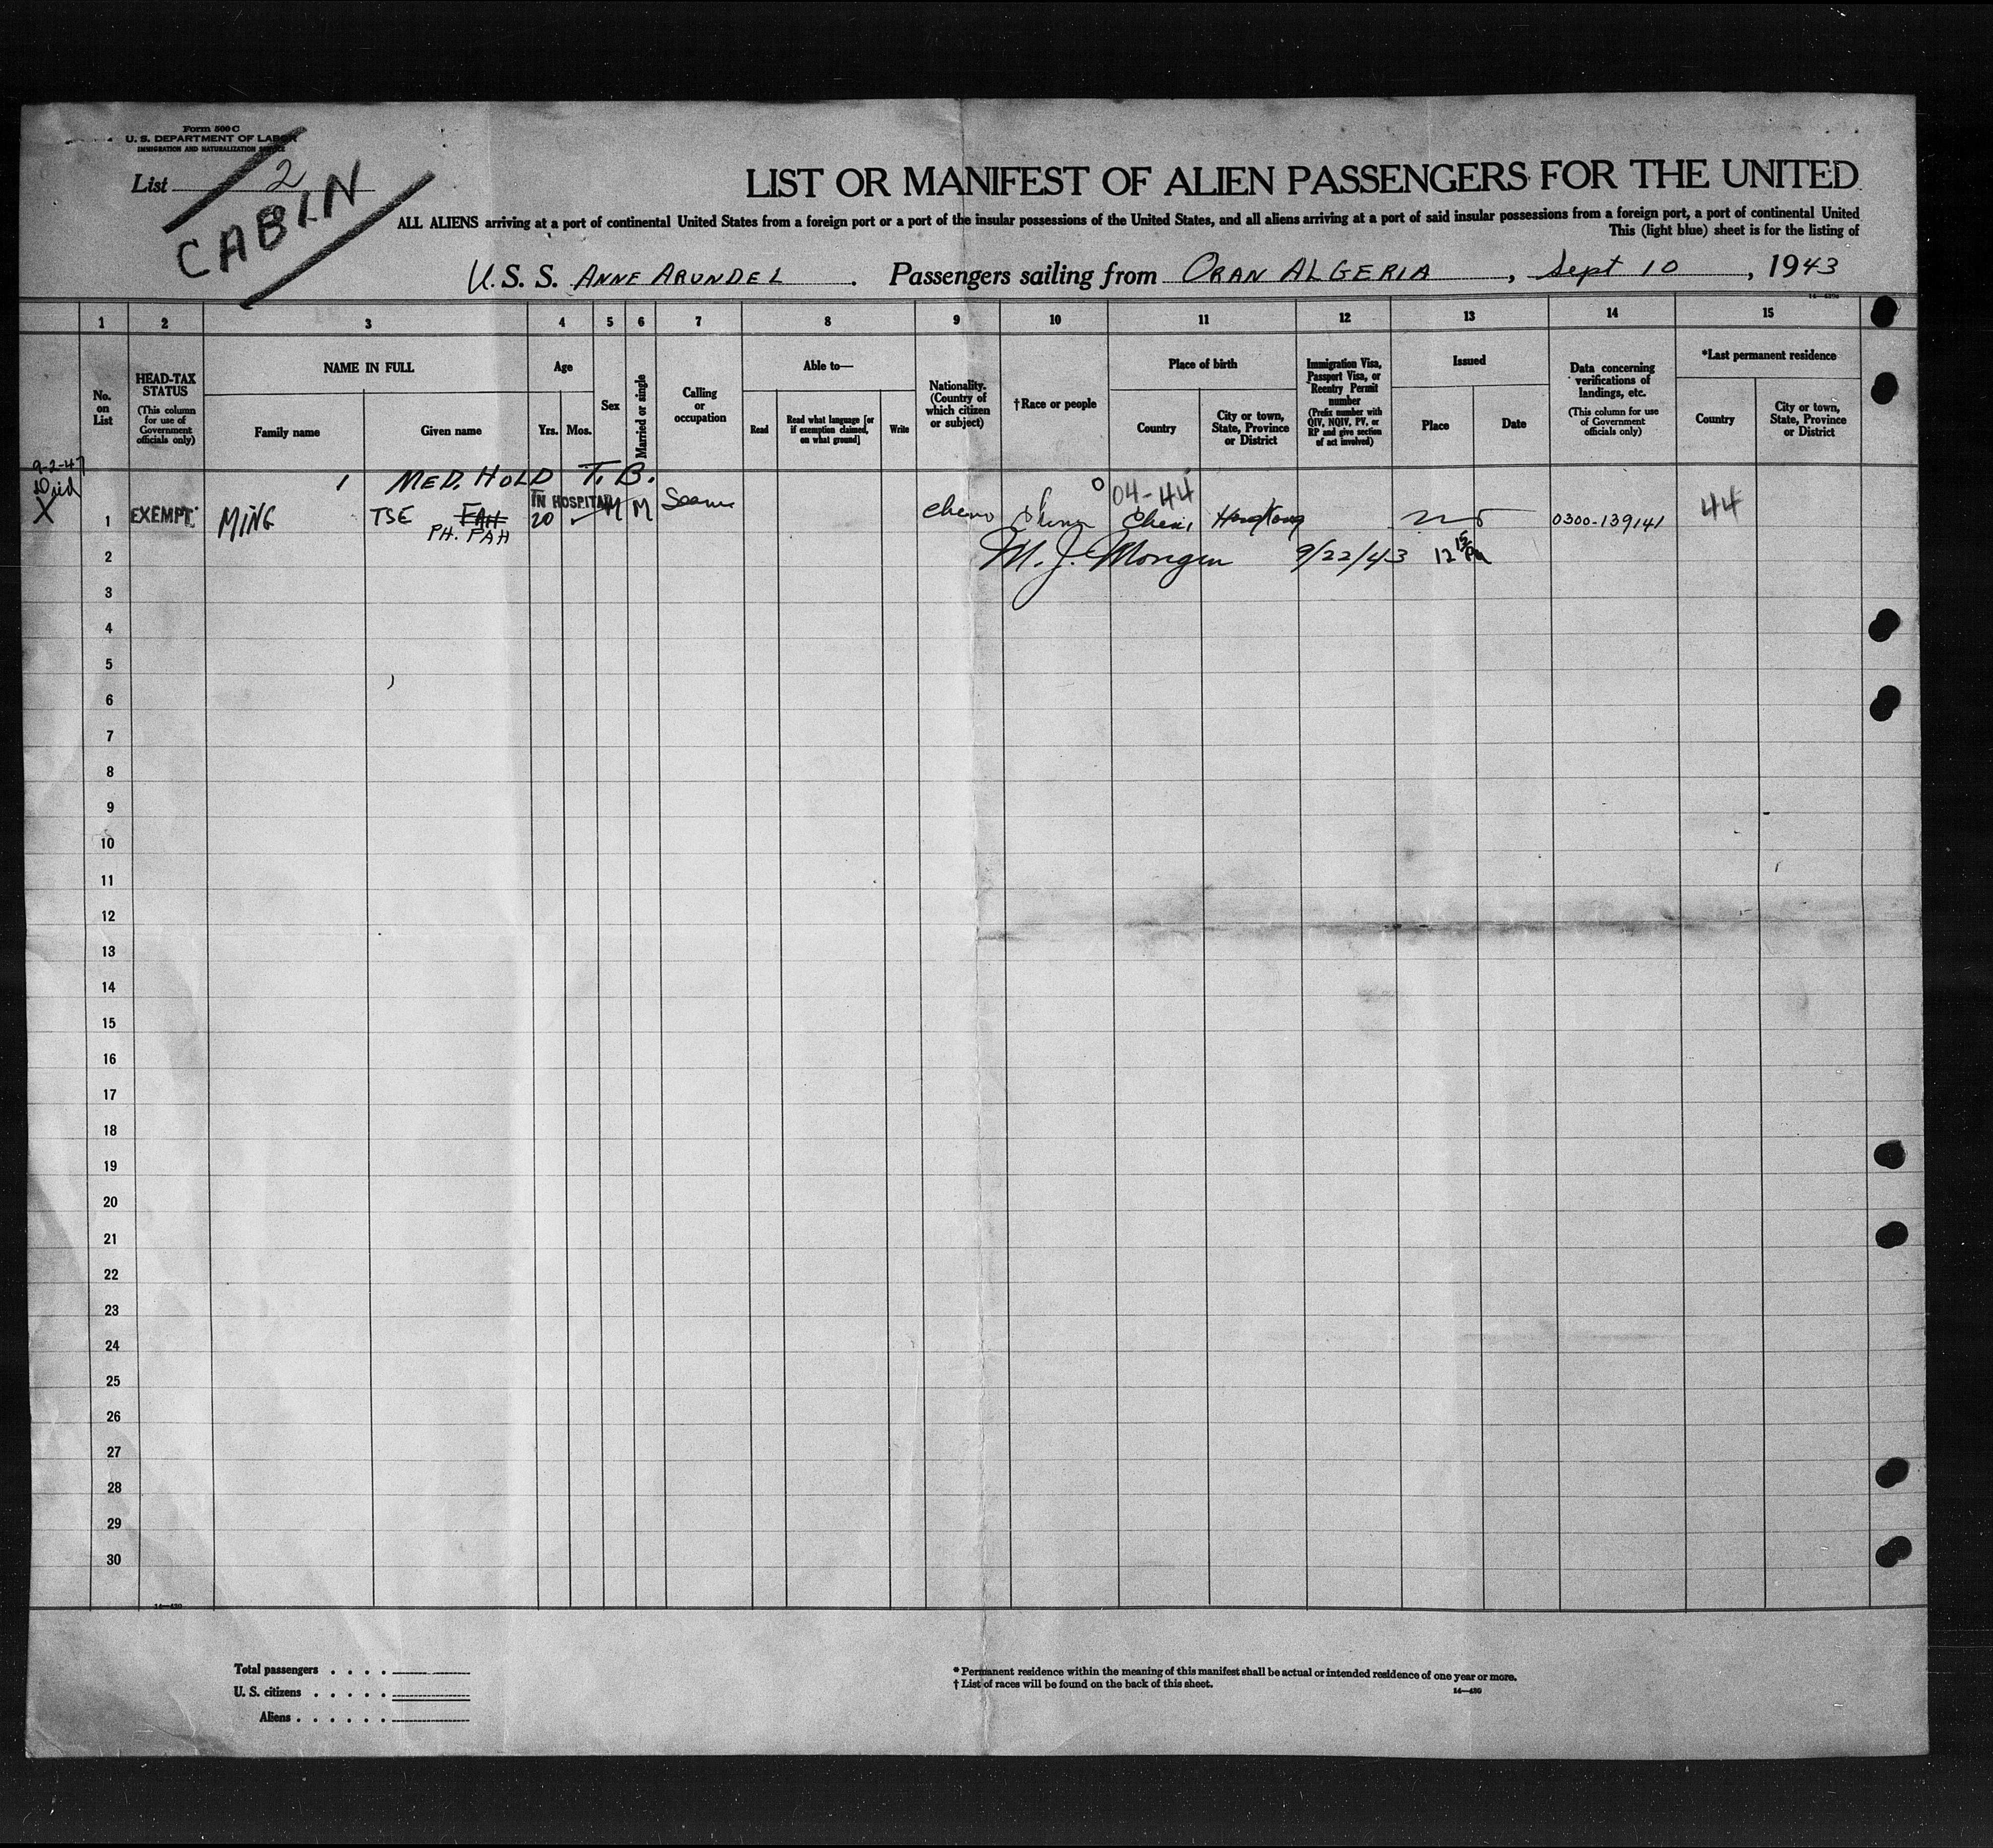 Form 500 C
U. S. DEPARTMENT OF LABOR
IMMIGRATION AND NATURALIZATION SERVICE
List 2
CABIN
LIST OR MANIFEST OF ALIEN PASSENGERS FOR THE UNITED
ALL ALIENS arriving at a port of continental United States from a foreign port or a port of the insular possessions of the United States, and all aliens arriving at a port of said insular possessions from a foreign port, a port of continental United
This (light blue) sheet is for the listing of
U. S. S. ANNE ARUNDEL . Passengers sailing from ORAN ALGERIA , Sept 10 , 1943
1 2 3 4 5 6 7 8 9 10 11 12 13 14 15
No. on List
HEAD-TAX STATUS
(This column for use of Government officials only)
NAME IN FULL
Family name
Given name
Age
Yrs.
Mos.
Sex
Married or single
Calling or occupation
Able to—
Read
Read what language [or if exemption claimed, on what ground]
Write
Nationality. (Country of which citizen or subject)
†Race or people
Place of birth
Country
City or town, State, Province or District
Immigration Visa, Passport Visa, or Reentry Permit number
(Prefix number with QIV, NQIV, PV, or RP and give section of act involved)
Issued
Place
Date
Data concerning verifications of landings, etc.
(This column for use of Government officials only)
*Last permanent residence
Country
City or town, State, Province or District
9-2-47
Died
X
1 MED. HOLD T. B.
IN HOSPITAL
04-44
1 EXEMPT MING TSE FAH 20 M M Hong Kong 0300-139141 44
PH. PAH
2 9/22/43 12 15 PM
3
4
5
6
7
8
9
10
11
12
13
14
15
16
17
18
19
20
21
22
23
24
25
26
27
28
29
30
14—430
Total passengers . . . .
U. S. citizens . . . . .
Aliens . . . . . .
* Permanent residence within the meaning of this manifest shall be actual or intended residence of one year or more.
† List of races will be found on the back of this sheet.
14—430